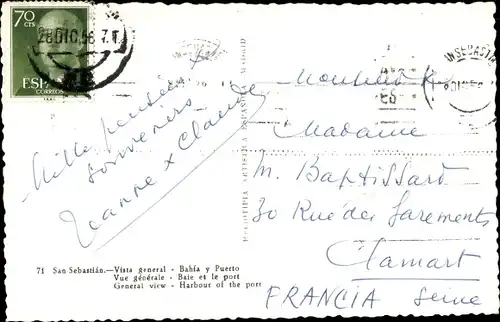 70
CTS
28 DIC 56 7.T
ESPAÑA
CORREOS
SAN SEBASTIAN
Mille pensées
souvenirs
Jeanne x Claude
HELIOTIPIA ARTISTICA ESPAÑOLA - MADRID
Monsieur &
Madame
M. Baptissard
30 Rue des Sarements
Clamart
FRANCIA Seine
71 San Sebastián.—Vista general - Bahía y Puerto
Vue générale - Baie et le port
General view - Harbour of the port